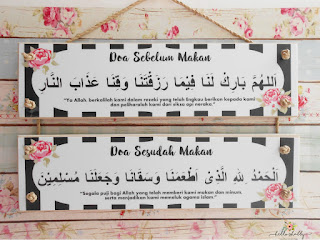 Doa Sebelum Makan
اَللّٰهُمَّ بَارِكْ لَنَا فِيْمَا رَزَقْتَنَا وَقِنَا عَذَابَ النَّارِ
"Ya Allah, berkatilah kami dalam rezeki yang telah Engkau berikan kepada kami
dan peliharalah kami dari siksa api neraka."
Doa Sesudah Makan
اَلْحَمْدُ لِلّٰهِ الَّذِيْ اَطْعَمَنَا وَسَقَانَا وَجَعَلَنَا مُسْلِمِيْنَ
"Segala puji bagi Allah yang telah memberi kami makan dan minum,
serta menjadikan kami memeluk agama islam."